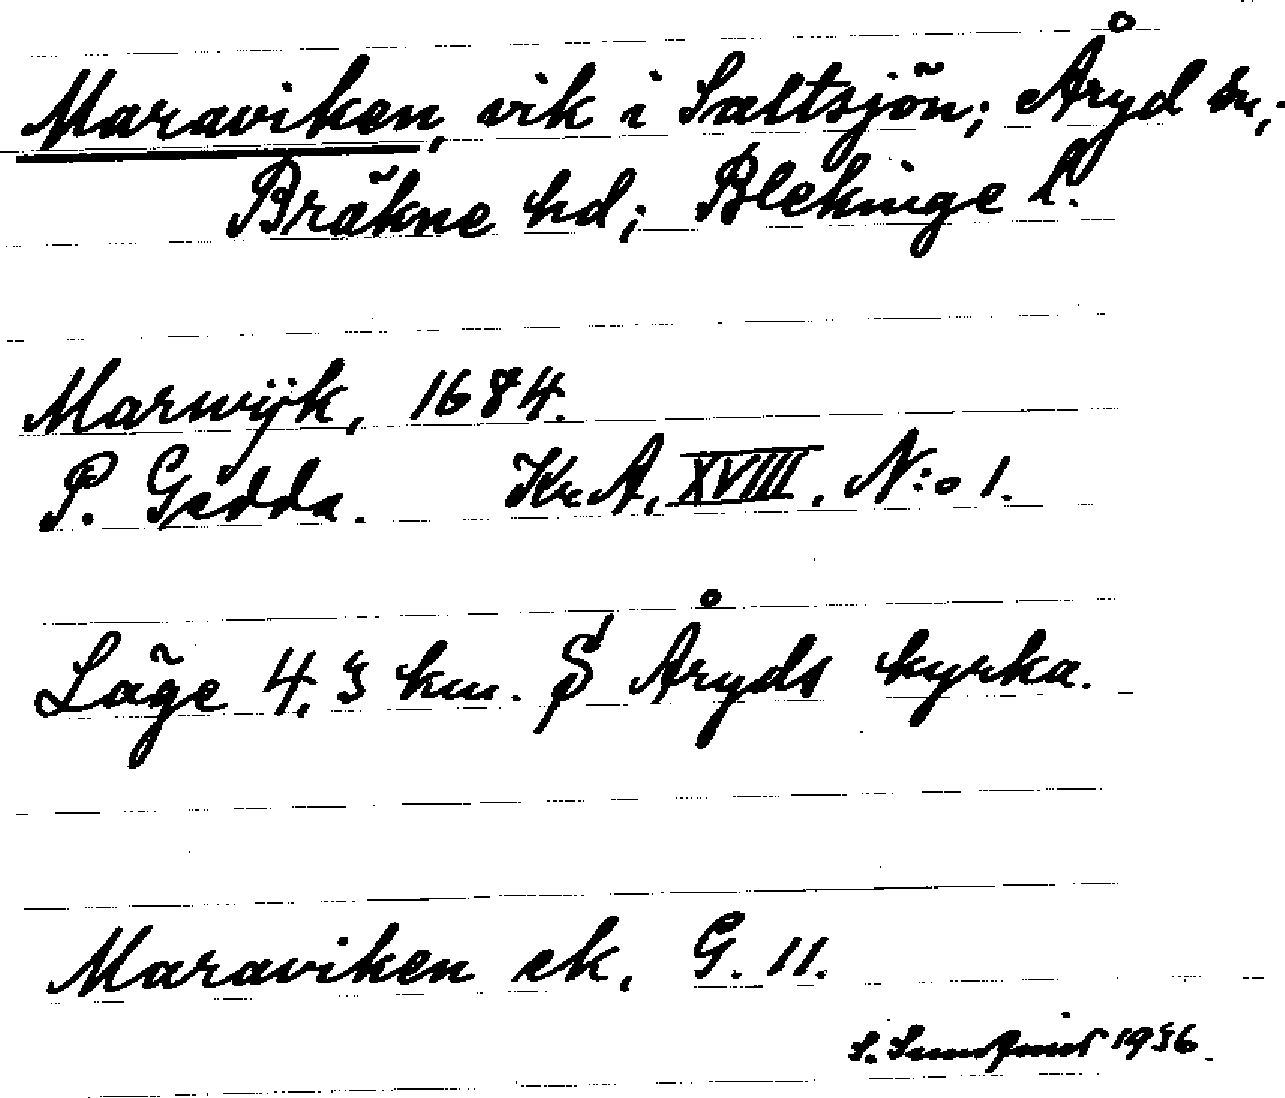 Maraviken, vik i Saltsjön; Åryd sn;
Bräkne hd; Blekinge l.
Marwijk, 1684.
P. Gedda. Kr.A. XVIII. N:o 1.
Läge 4.5 km. S Åryds kyrka.
Maraviken ek. G. 11.
S. 1956.